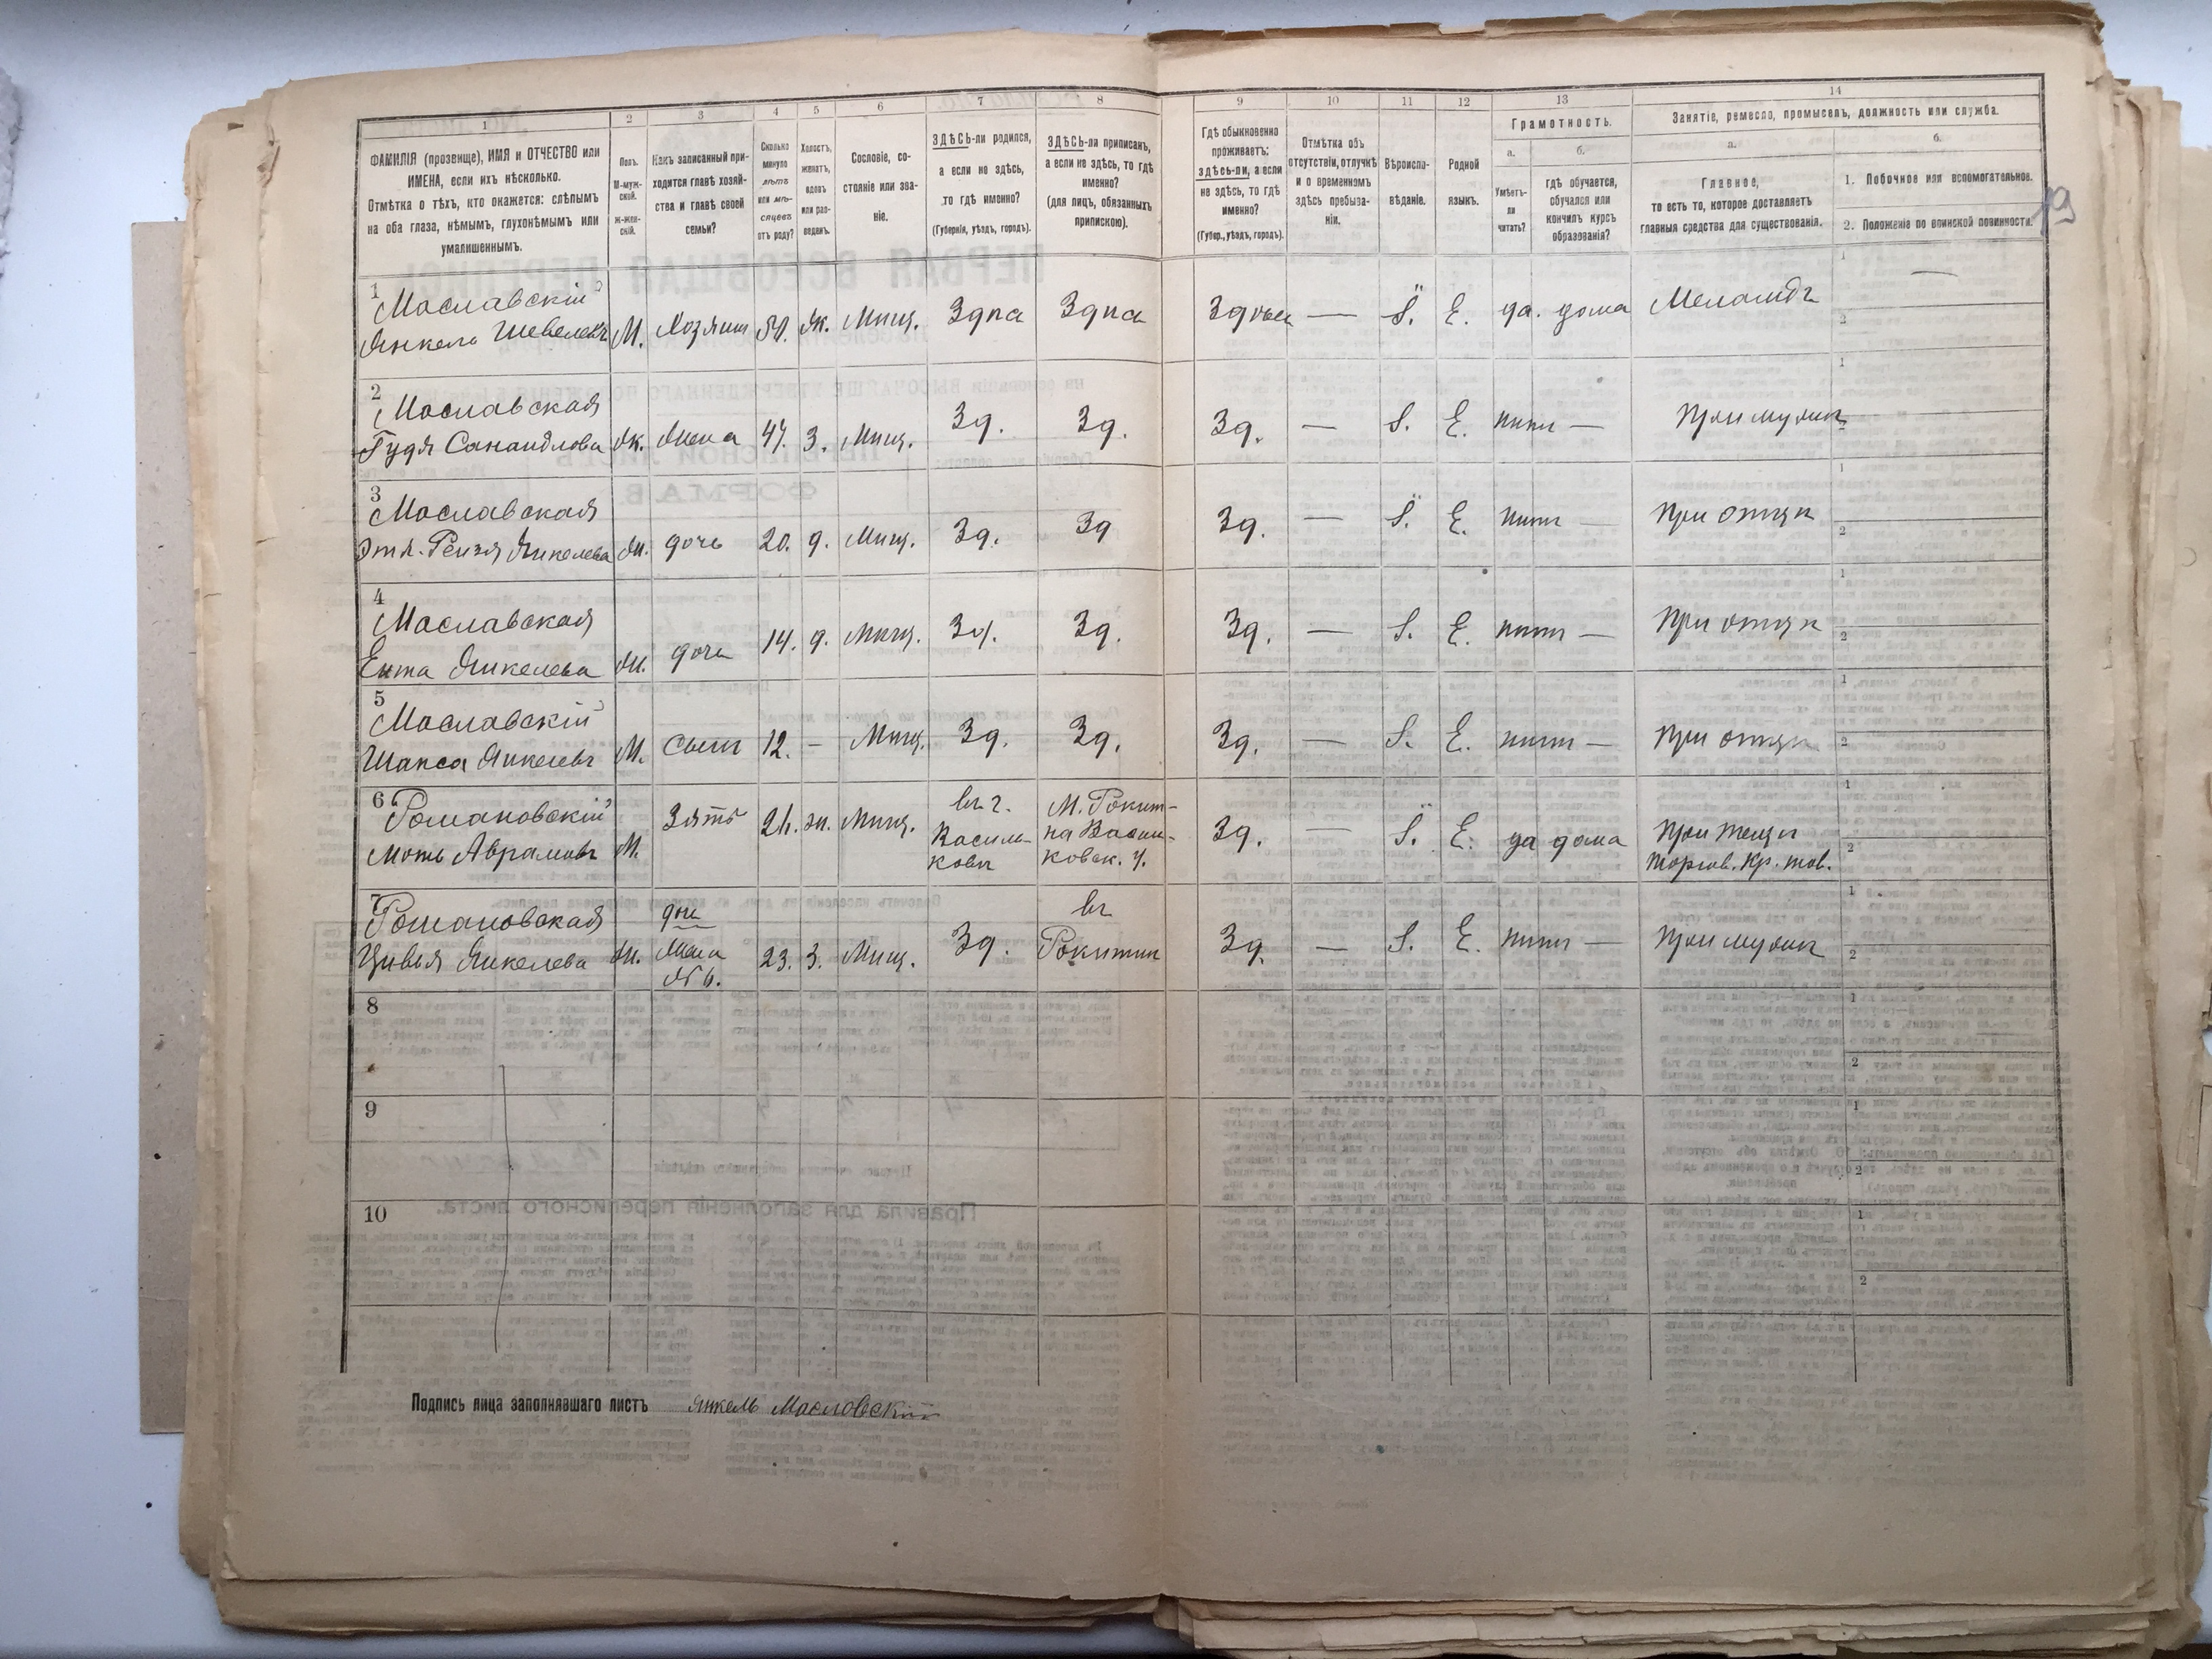 1 2 3 4 5 6 7 8 9 10 11 12 13 14
ФАМИЛІЯ (прозвище), ИМЯ и ОТЧЕСТВО или
ИМЕНА, если ихъ нѣсколько.
Отмѣтка о тѣхъ, кто окажется: слѣпымъ
на оба глаза, нѣмымъ, глухонѣмымъ или
умалишеннымъ.
Полъ.
М-муж-
ской.
Ж-жен-
скій.
Какъ записанный при-
ходится главѣ хозяй-
ства и главѣ своей
семьи?
Сколько
минуло
лѣтъ
или мѣ-
сяцевъ
отъ роду?
Холостъ,
женатъ,
вдовъ
или раз-
веденъ.
Сословіе, со-
стояніе или зва-
ніе.
ЗДѢСЬ-ли родился,
а если не здѣсь,
то гдѣ именно?
(Губернія, уѣздъ, городъ).
ЗДѢСЬ-ли приписанъ,
а если не здѣсь, то гдѣ
именно?
(для лицъ, обязанныхъ
припискою).
Гдѣ обыкновенно
проживаетъ:
здѣсь-ли, а если
не здѣсь, то гдѣ
именно?
(Губер., уѣздъ, городъ).
Отмѣтка объ
отсутствіи, отлучкѣ
и о временномъ
здѣсь пребыва-
ніи.
Вѣроиспо-
вѣданіе.
Родной
языкъ.
Грамотность.
а.
Умѣетъ-
ли
читать?
б.
гдѣ обучается,
обучался или
кончилъ курсъ
образованія?
Занятіе, ремесло, промыселъ, должность или служба.
а.
Главное,
то есть то, которое доставляетъ
главныя средства для существованія.
б.
1. Побочное или вспомогательное.
2. Положеніе по воинской повинности.
19
1
Мославскій
Янкель Шевелевъ М. Хозяин Ж. Мищ. Здѣсь — I. Е. да. дома Меламдъ —
2
Мославская
Гудя Жена 47. З. Мищ. Зд. Зд. Зд. — I. Е. нит — При мужи
3
Мославская
Рейзя Янкелева дочь 20. д. Мищ. Зд. Зд Зд. — I. Е. нит — При отцѣ
4
Мославская
Ента Янкелева дочь 14. д. Мищ. Зд. Зд. Зд. — I. Е. нит — При отцѣ
5
Мославскій
Шапса Янкелевъ М. Сынъ 12. — Мищ. Зд. Зд. Зд. — I. Е. нит — При отцѣ
6
Романовскій
Моть Аврамовъ М. Зять Мищ. въ г. Василь-
ковѣ М. Рокит-
на Васил-
ковск. у. Зд. — I. Е. да дома При тещи
торгов. Кр. тов.
7
Романовская
Цивья Янкелева дочь
жена
№ 6. 23. З. Мищ. Зд. въ
Рокитни Зд. — I. Е. нит — При мужи
8
9
10
Подпись лица заполнявшаго листъ Янкель Масловскій